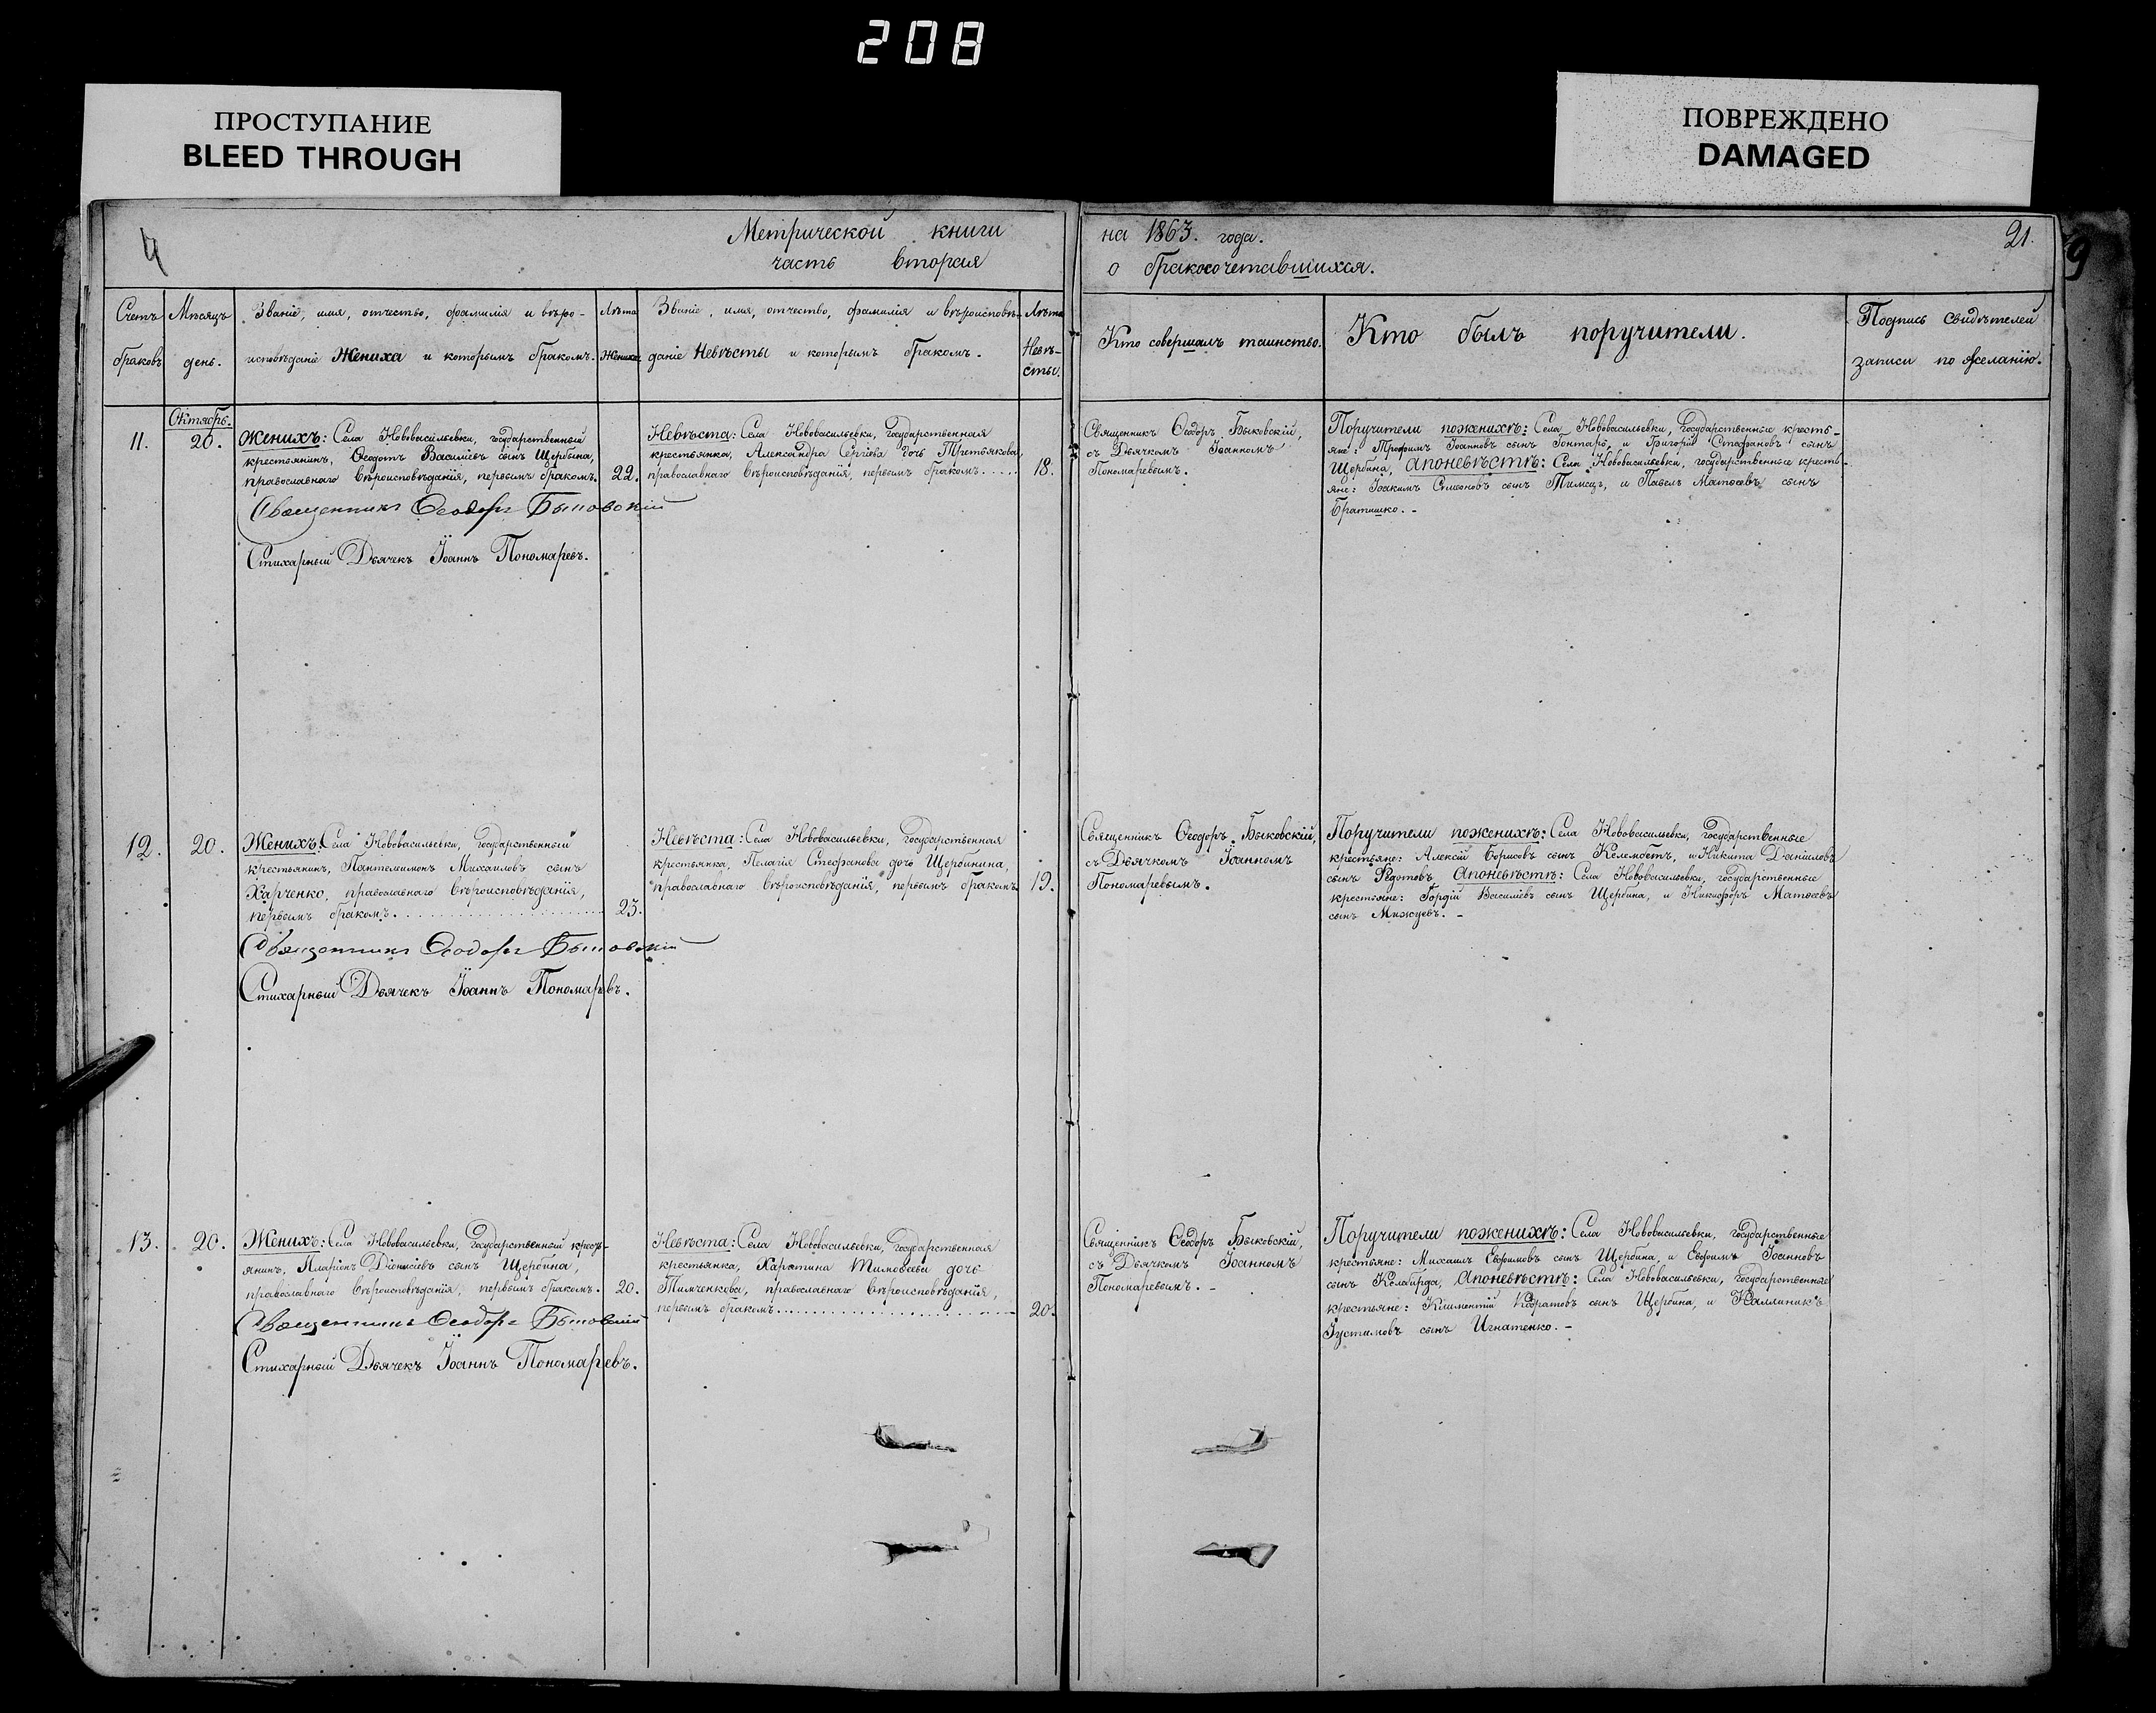 208
ПРОСТУПАНИЕ
BLEED THROUGH
ПОВРЕЖДЕНО
DAMAGED
Метрической книги
часть вторая
на 1863. года.
о бракосочетавшихся.
21.
Счетъ
браковъ
Мѣсяцъ
день.
Званіе, имя, отчество, фамилія и вѣро-
исповѣданіе Жениха и которымъ бракомъ.
Лѣта
Жениха
Званіе, имя, отчество, фамилія и вѣроисповѣ-
даніе Невѣсты и которымъ бракомъ.
Лѣта
Невѣ-
сты.
Кто совершалъ таинство.
Кто былъ поручители.
Подпись свидѣтелей
записи по желанію.
Октябрь.
11.
20.
Женихъ: Села Нововасильевки, государственный
крестьянинъ, Ѳеодотъ Василіевъ сынъ Щербина,
православнаго вѣроисповѣданія, первымъ бракомъ.
22.
Священникъ Ѳеодоръ Быковскій
Стихарный Дьячекъ Іоаннъ Пономаревъ.
Невѣста: Села Нововасильевки, государственная
крестьянка, Александра Сергіева дочь Третьякова,
православнаго вѣроисповѣданія, первымъ бракомъ.....
18.
Священникъ Ѳеодоръ Быковскій,
съ Дьячкомъ Іоанномъ
Пономаревымъ.
Поручители поженихѣ: Села Нововасильевки, государственные кресть-
яне: Трофимъ Іоанновъ сынъ Гонтарь, и Григорій Стефановъ сынъ
Щербина, апоневѣстѣ: Села Нововасильевки, государственные кресть-
яне: Іоакимъ Симеоновъ сынъ и Павелъ Матѳеевъ сынъ
Братишко. -
12.
20.
Женихъ: Села Нововасильевки, государственный
крестьянинъ, Пантелеимонъ Михаиловъ сынъ
Харченко, православнаго вѣроисповѣданія,
первымъ бракомъ.
23.
Священникъ Ѳеодоръ Быковскій
Стихарный Дьячекъ Іоаннъ Пономаревъ.
Невѣста: Села Нововасильевки, государственная
крестьянка, Пелагія Стефанова дочь Щербинина,
православнаго вѣроисповѣданія, первымъ бракомъ
19.
Священникъ Ѳеодоръ Быковскій,
съ Дьячкомъ Іоанномъ
Пономаревымъ.
Поручители поженихѣ: Села Нововасильевки, государственные
крестьяне: Алексій Борисовъ сынъ Келембетъ, и Никита Даніиловъ
сынъ Ѳедотовъ апоневѣстѣ: Села Нововасильевки, государственные
крестьяне: Гордій Василіевъ сынъ Щербина, и Никифоръ Матѳеевъ
сынъ Мижуевъ. -
13.
20.
Женихъ: Села Нововасильевки, государственный крест-
янинъ, Иларіонъ Діонисіевъ сынъ Щербина,
православнаго вѣроисповѣданія, первымъ бракомъ.
20.
Священникъ Ѳеодоръ Быковскій
Стихарный Дьячекъ Іоаннъ Пономаревъ.
Невѣста: Села Нововасильевки, государственная
крестьянка, Харитина Тимоѳеева дочь
Тимченкова, православнаго вѣроисповѣданія,
первымъ бракомъ.
20.
Священникъ Ѳеодоръ Быковскій,
съ Дьячкомъ Іоанномъ
Пономаревымъ. -
Поручители поженихѣ: Села Нововасильевки, государственные
крестьяне: Михаилъ Евфимовъ сынъ Щербина, и Евфимъ Іоанновъ
сынъ Колабирда, апоневѣстѣ: Села Нововасильевки, государственные
крестьяне: Климентій Кодратовъ сынъ Щербина, и Каллиникъ
Іустиновъ сынъ Игнатенко. -